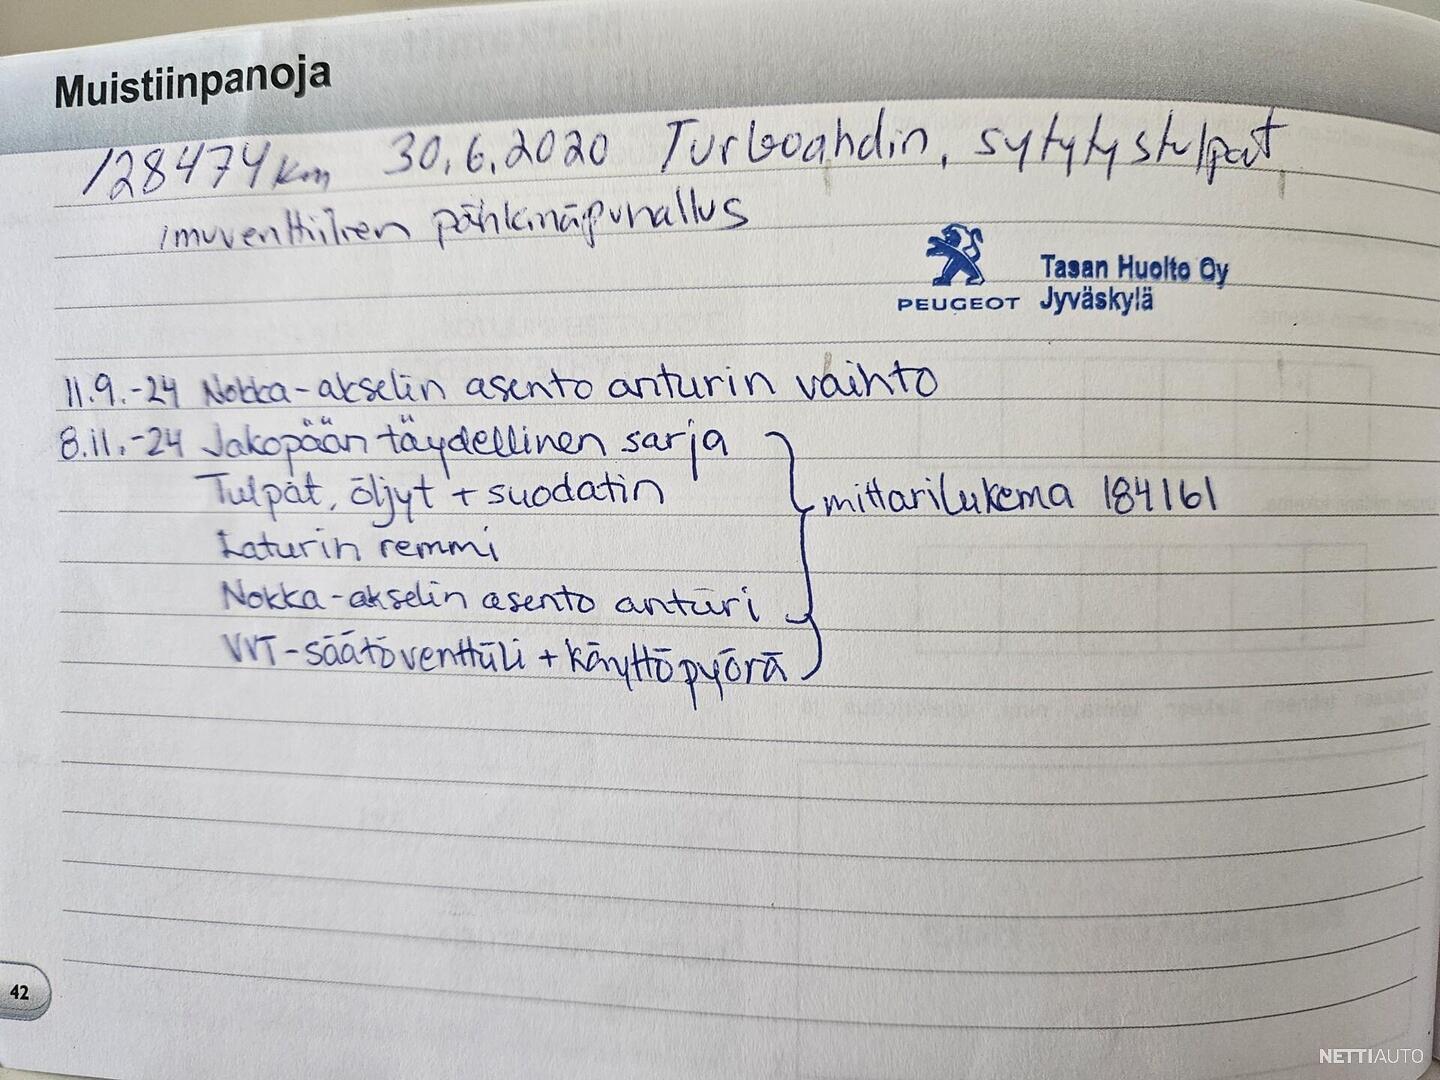 Muistiinpanoja
128474 km 30.6.2020 Turboahdin, sytytystulpat
imuventtiilien pähkinäpuhallus
PEUGEOT
Tasan Huolto Oy
Jyväskylä
11.9.-24 Nokka-akselin asento anturin vaihto
8.11.-24 Jakopään täydellinen sarja
Tulpat, öljyt + suodatin
mittarilukema 184161
Laturin remmi
Nokka-akselin asento anturi
VVT-säätöventtiili + käyttöpyörä
42
NETTIAUTO